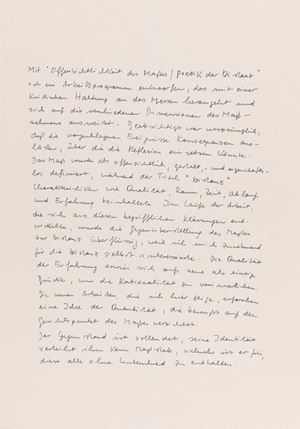 Mit "Offensichtlichkeit des Maßes / Poetik der Distanz"
ist ein Arbeitsprogramm entworfen, das mit einer
kritischen Haltung an das Messen herangeht und
sich auf die verschiedenen Dimensionen des Maß-
nehmens ausweitet. Beabsichtigt war ursprünglich,
daß die vorgeschlagenen Begriffe Konsequenzen aus-
lösten, über die die Reflexion einsetzen könnte.
Das Maß wurde als offensichtlich, und eigenschafts-
los definiert, während der Titel "Distanz"
Charakteristiken wie Qualität, Raum, Zeit, Ablauf
und Erfahrung beinhaltete. Im Laufe der Arbeit
die sich aus diesen begrifflichen Klärungen ent-
wickelte, wurde die Gegenüberstellung des Maßes
zur Distanz überflüssig, weil ich mich zunehmend
für die Distanz selbst interessierte. Die Qualität
der Erfahrung erwies sich auch hier als einzige
Brücke, um die Rationalität zu verinnerlichen.
Die neuen Arbeiten, die ich hier zeige, erforschen
eine Idee der Quantität, die bewußt auf den
Gesichtspunkt des Maßes verzichtet.
Der Gegenstand ist vollendet, seine Identität
verleiht ihm kein Maßstab, vielmehr ist er frei,
diese alle ohne Unterschied zu enthalten.